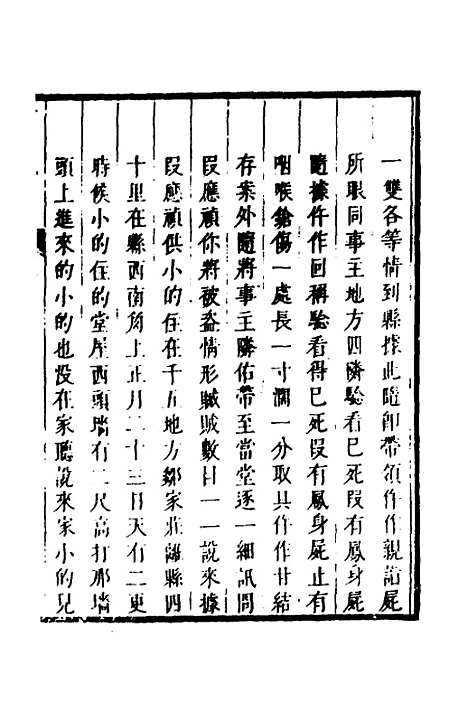 一雙各等情到縣據此隨卽帶領仵作親詣屍
所眼同事主地方四隣驗看已死段有鳳身屍
隨據仵作回稱驗看得已死段有鳳身屍止有
咽喉鎗傷一處長一寸濶一分取具仵作甘結
存案外隨將事主隣佑帶至當堂逐一細訊問
段應頑你將被盜情形贓賊數目一一說來據
段應頑供小的住在千五地方鄒家莊離縣四
十里在縣西南角上正月二十三日天有二更
時候小的住的堂屋西頭墻有二尺高打那墻
頭上進來的小的也没在家聽說來家小的兒